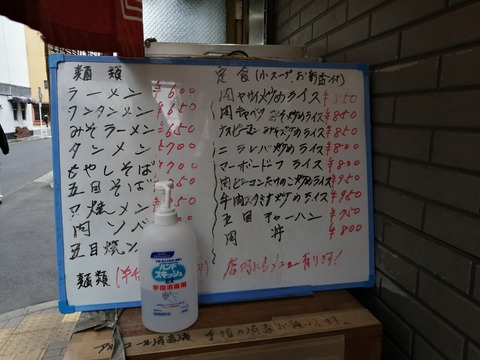 麺類
ラーメン ¥600
ワンタンメン ¥650
みそラーメン ¥650
タンメン ¥700
もやしそば ¥700
五目そば
焼メン
肉ソバ
五目焼
麺類
定食(小スープ、お新香付)
肉ヤサイ炒めライス ¥850
肉キャベツみそ炒めライス ¥850
ナスピーマンみそ炒めライス ¥850
ニラレバ炒めライス ¥800
マーボードーフライス ¥800
肉ピーマンたけのこ炒めライス ¥950
牛肉スタミナ炒めライス ¥950
五目チャーハン ¥750
肉丼 ¥800
店内にもメニュー有ります!
ハンド
スキッシュ
EX
手指消毒剤
アルコール消毒液 手指の消毒お願いします。